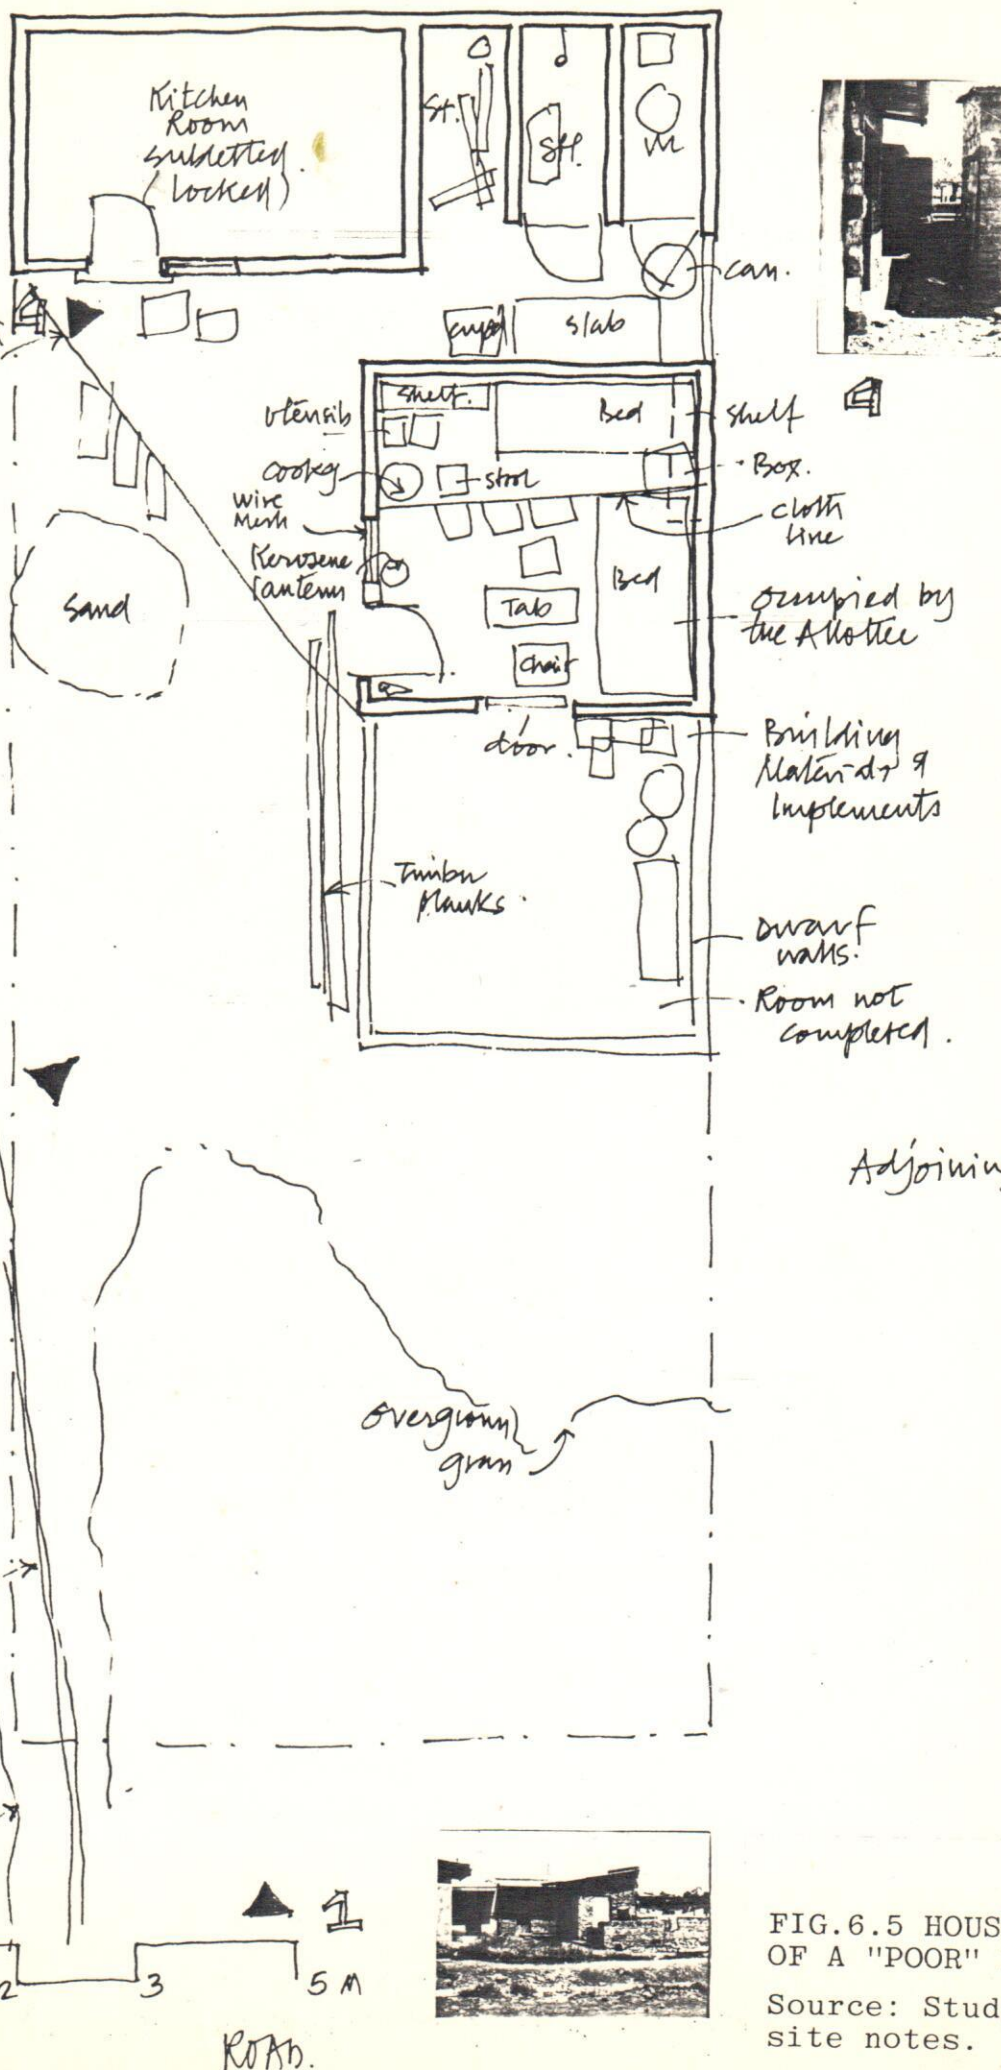 Kitchen
Room
subletted.
(locked)
St.
SH.
W
can.
cupd
slab
shelf.
Bed
shelf
utensils
cookg
stool
Box.
wire
Mesh
cloth
line
Kerosene
lantern
Sand
Tab
Bed
occupied by
the Allottee
chair
door.
Building
Materials &
Implements
Timber
planks.
Dwarf
walls.
Room not
completed.
4
4
Adjoining
overgrown
grass
1
2
3
5 M
ROAD.
FIG.6.5 HOUS
OF A "POOR"
Source: Stud
site notes.